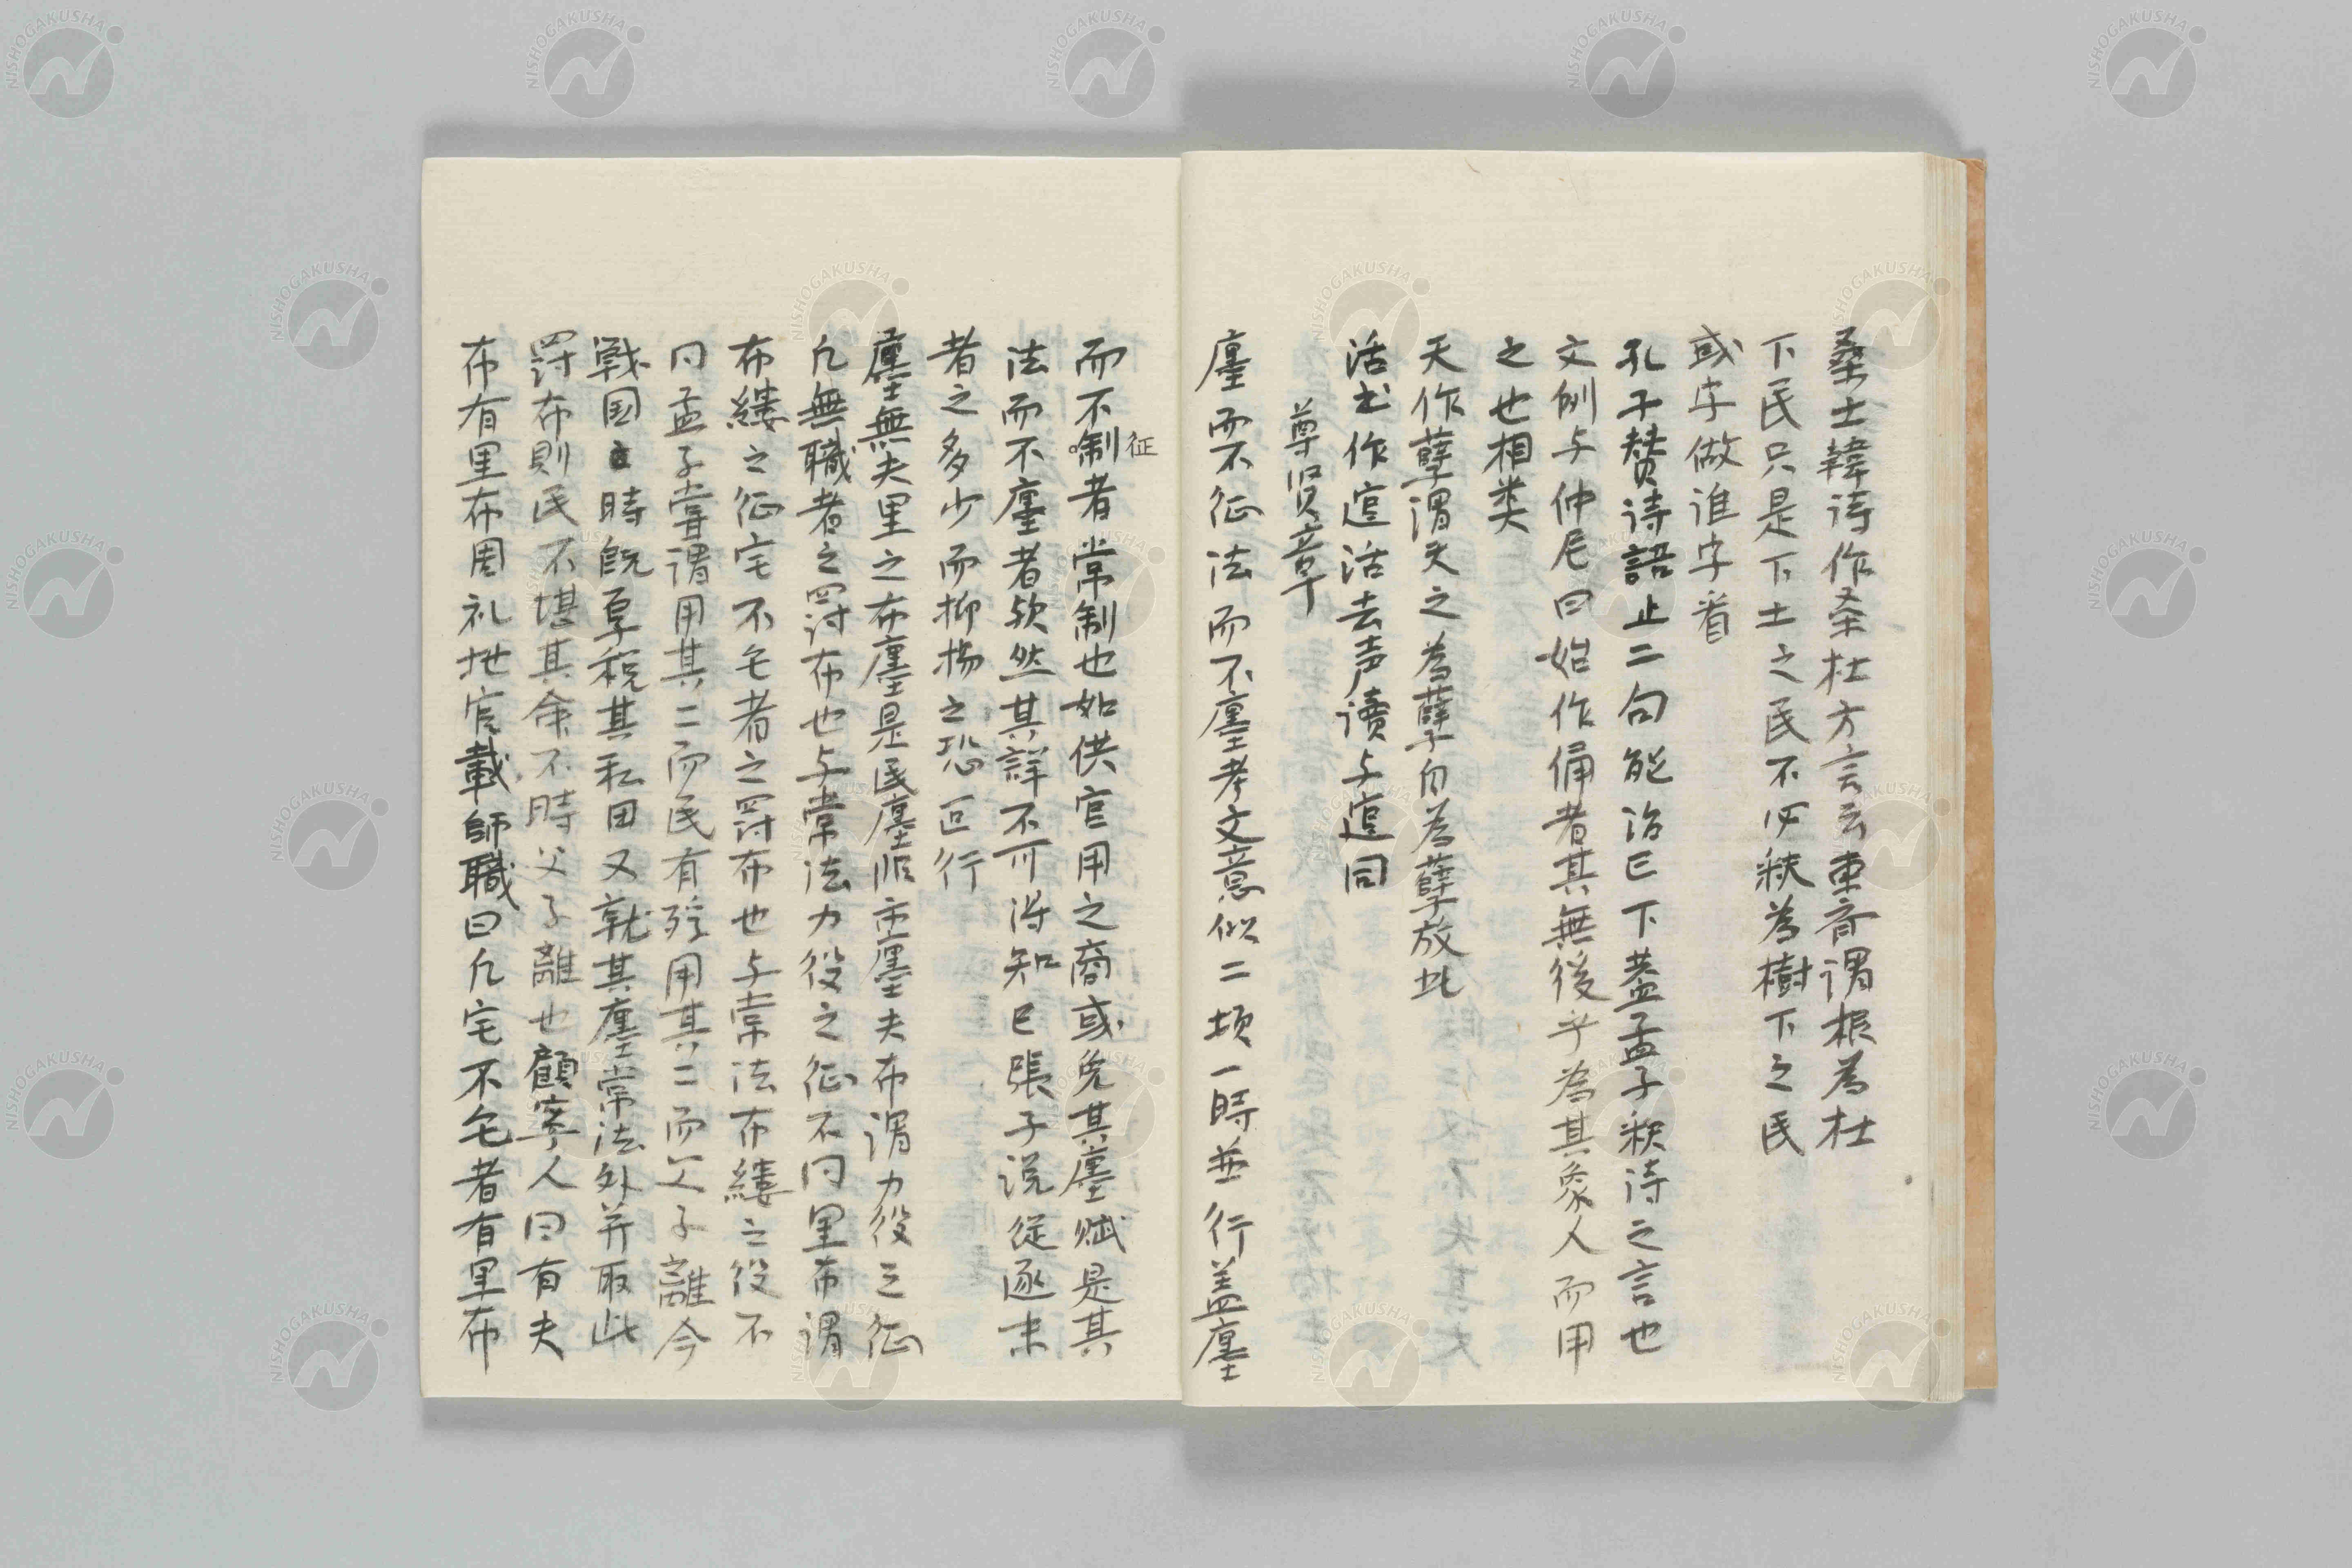 桑士韓詩作桑杜方言云東斉謂根為杜
下民只是下土之民不必釈為樹下之民
或字做誰字看
孔子賛詩語止二句能治已下蓋孟子釈詩之言也
文例与仲尼曰始作俑者其無後乎為其象人而用
之也相类
天作孽謂天之為孽自為孽放此
活書作逭活去声読与逭同
尊賢章
廛而不征法而不廛孝文意似二項一時並行蓋廛
而不制者常制也如供官用之商或免其廛賦是其
征
法而不廛者欤然其詳不可得知已張子说從逐末
者之多少而抑揚之恐叵行
廛無夫里之布廛是民廛非市廛夫布謂力役之征
凡無職者之罰布也与常法力役之征不同里布謂
布縷之征宅不毛者之罰布也与常法布縷之役不
同孟子嘗謂用其二而民有殍用其三而父子離今
戦国之時既厚税其私田又就其廛常法外并取此
罰布則民不堪其命不時父子離也顧寧人曰有夫
布有里布周礼地官載師職曰凡宅不毛者有里布
NISHOGAKUSHA